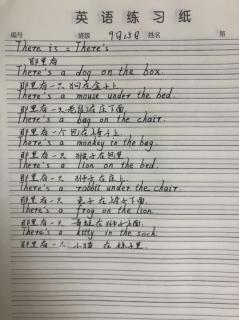 英语练习纸
编号 班级 9月15日 姓名 第
There is = There's
那里有
There's a dog on the box.
那里有一只狗在盒子上.
There's a mouse under the bed.
那里有一只老鼠在床下面.
There's a bag on the chair.
那里有一个包在椅子上.
There's a monkey in the bag.
那里有一只 猴子在包里.
There's a lion on the bed.
那里有一只 狮子在床上.
There's a rabbit under the chair.
那里有一只 兔子在椅子下面.
There's a frog on the lion.
那里有一只 青蛙在狮子上面.
There's a kitty in the sock.
那里有一只 小猫 在袜子里.